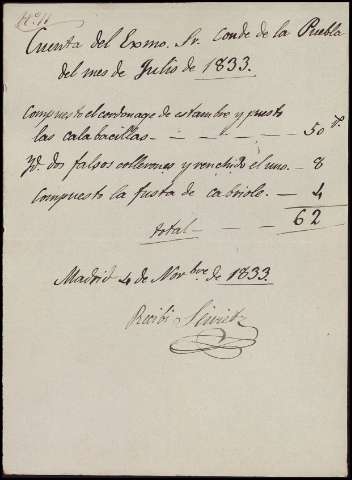 Nº 11
Cuenta del Exmo. Sr. Conde de la Puebla
del mes de Julio de 1833.
Compuesto el cordonage de estambre y puesto
las calabacillas 50
Yd. dos falsos collerones y renchido el uno 8
Compuesto la fusta de cabriole. 4
total 62
Madrid 4 de Novbre de 1833.
Recibi